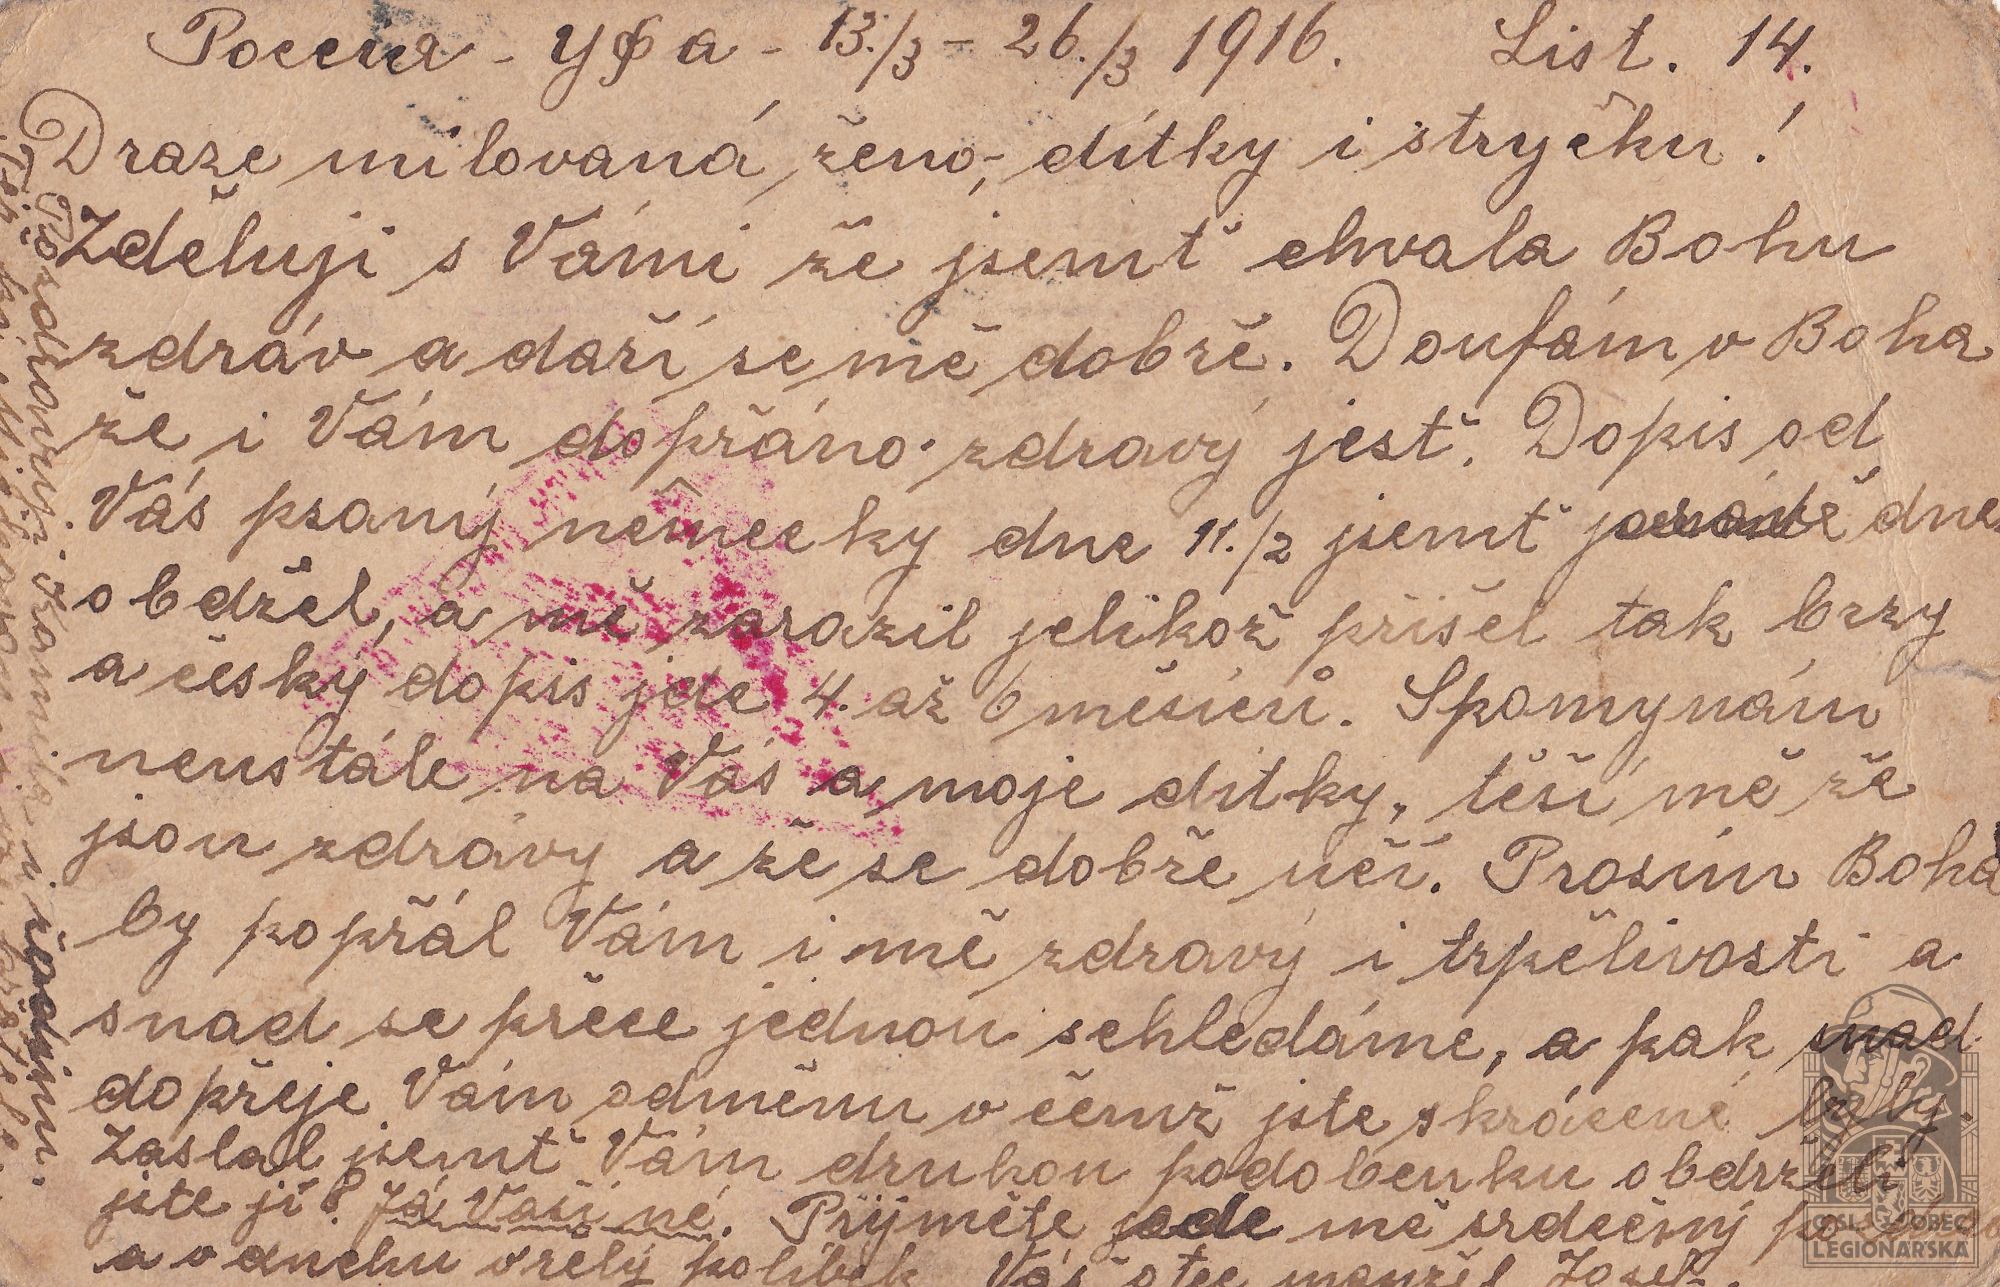 Россия - Уфа - 13./3 - 26./3 1916. List. 14.
Draze milovaná ženo, dítky i stryčku!
Zděluji s Vámi že jsemť chvala Bohu
zdráv a daří se mě dobře. Doufám v Boha
že i Vám dopřáno zdravý jesť. Dopis od
Vás psaný německy dne 11./2 jsemť dne
obdržel, a mě zarazil jelikož přišel tak brzy
a český dopis jde 4. až 6 měsíců. Spomynám
neustále na Vás a moje dítky, těší mě že
jsou zdrávy a že se dobře učí. Prosím Boha
by popřál Vám i mě zdravý i trpělivosti a
snad se přece jednou schledáme, a pak snad
dopřeje Vám odměnu v čemž jste skrácené byly.
Zaslal jsemť Vám druhou podobenku obdrželi
jste ji? Já Vaší né. Příjměte ode mě srdečný
a v duchu vřelý políbek Váš otec manžel Josef.
Pozdravuji i rodinu.
ČSL. OBEC
LEGIONÁŘSKÁ